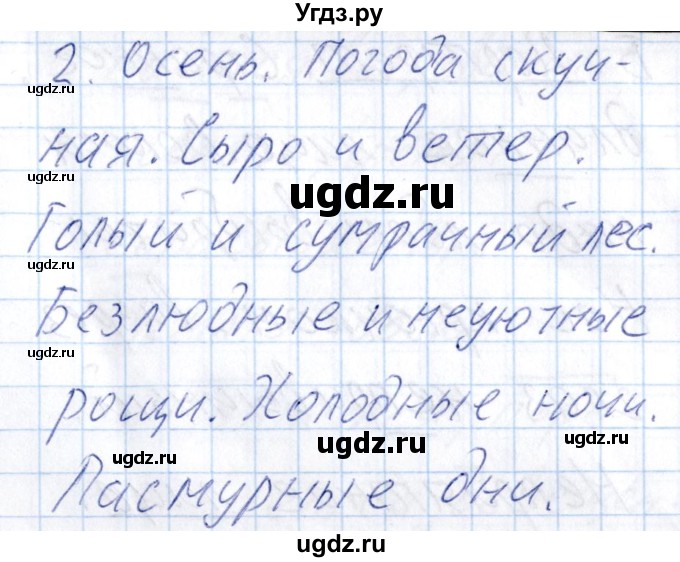 Угдз.ру
2. Осень. Погода скуч-
ugdz.ru
ная. Сыро и ветер.
ugdz.ru
ugdz.ru
Голый и сумрачный лес.
ugdz.ru
Безлюдные и неуютные
ugdz.ru
рощи. Холодные ночи.
ugdz.ru
ugdz.ru
ugdz.ru
Пасмурные дни.
ugdz.ru
ugdz.ru